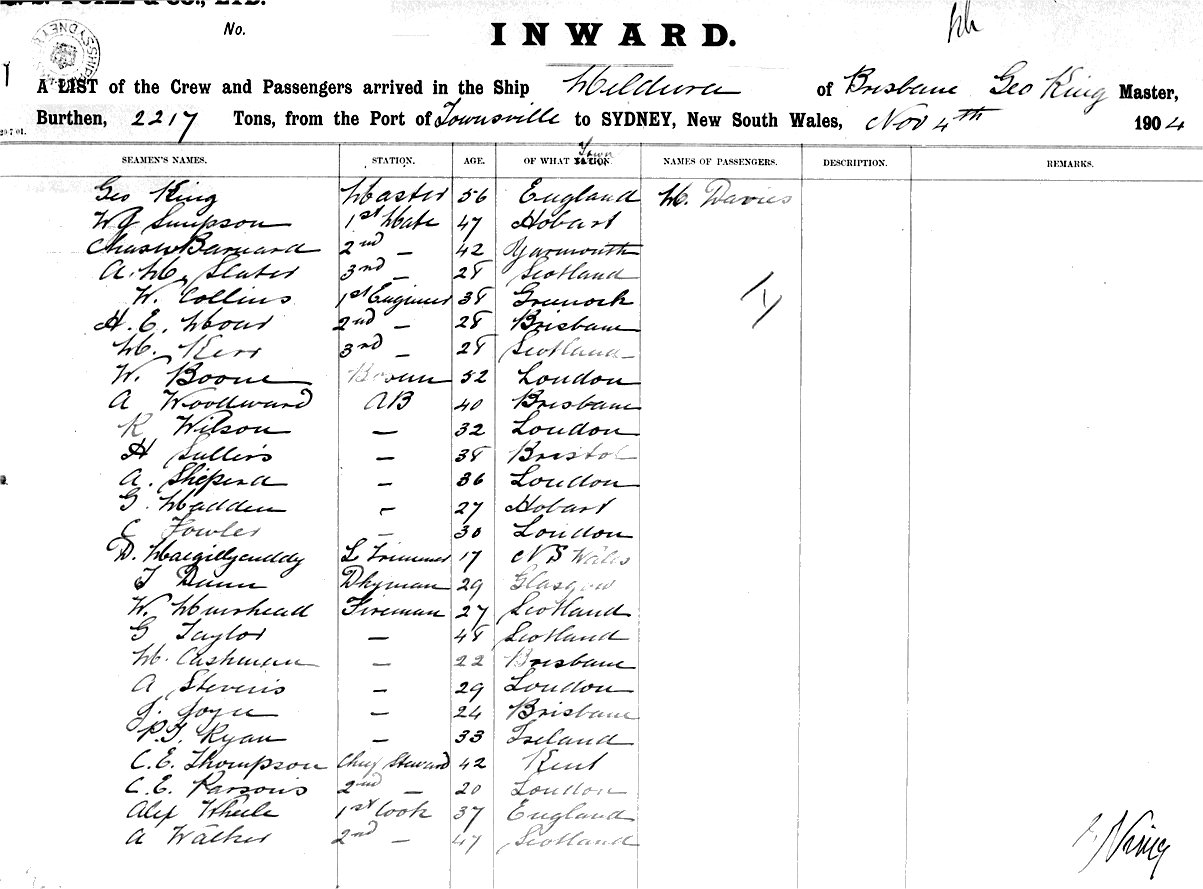 No.
INWARD.
A LIST of the Crew and Passengers arrived in the Ship Mildura of Brisbane Geo King Master,
Burthen, 2217 Tons, from the Port of Townsville to SYDNEY, New South Wales, Nov 4th 1904
SEAMEN'S NAMES. STATION. AGE. OF WHAT Town NAMES OF PASSENGERS. DESCRIPTION. REMARKS.
Geo King Master 56 England M. Davies
W J Simpson 1st Mate 47 Hobart
Chas W Barnard 2nd — 42 Yarmouth
A. M. Slater 3rd — 28 Scotland
W. Collins 1st Engineer 38 Greenock
H. E. Moar 2nd — 28 Brisbane
M. Kerr 3rd — 28 Scotland
W. Boone Bosun 52 London
A Woodward AB 40 Brisbane
R Wilson — 32 London
H Sullivs — 38 Bristol
A. Sheperd — 36 London
G. Madden — 27 Hobart
C Fowler — 30 London
D. Macgillycuddy L Trimmer 17 N S Wales
T Dunn Dkyman 29 Glasgow
W. Muirhead Fireman 27 Scotland
G Taylor — 48 Scotland
M. Cashman — 22 Brisbane
A Stevens — 29 London
J. Joyce — 24 Brisbane
P. J. Ryan — 33 Ireland
C. E. Thompson Chief Steward 42 Kent
C. E. Parsons 2nd — 20 London
Alex Wheele 1st Cook 37 England
A Walker 2nd — 47 Scotland
King